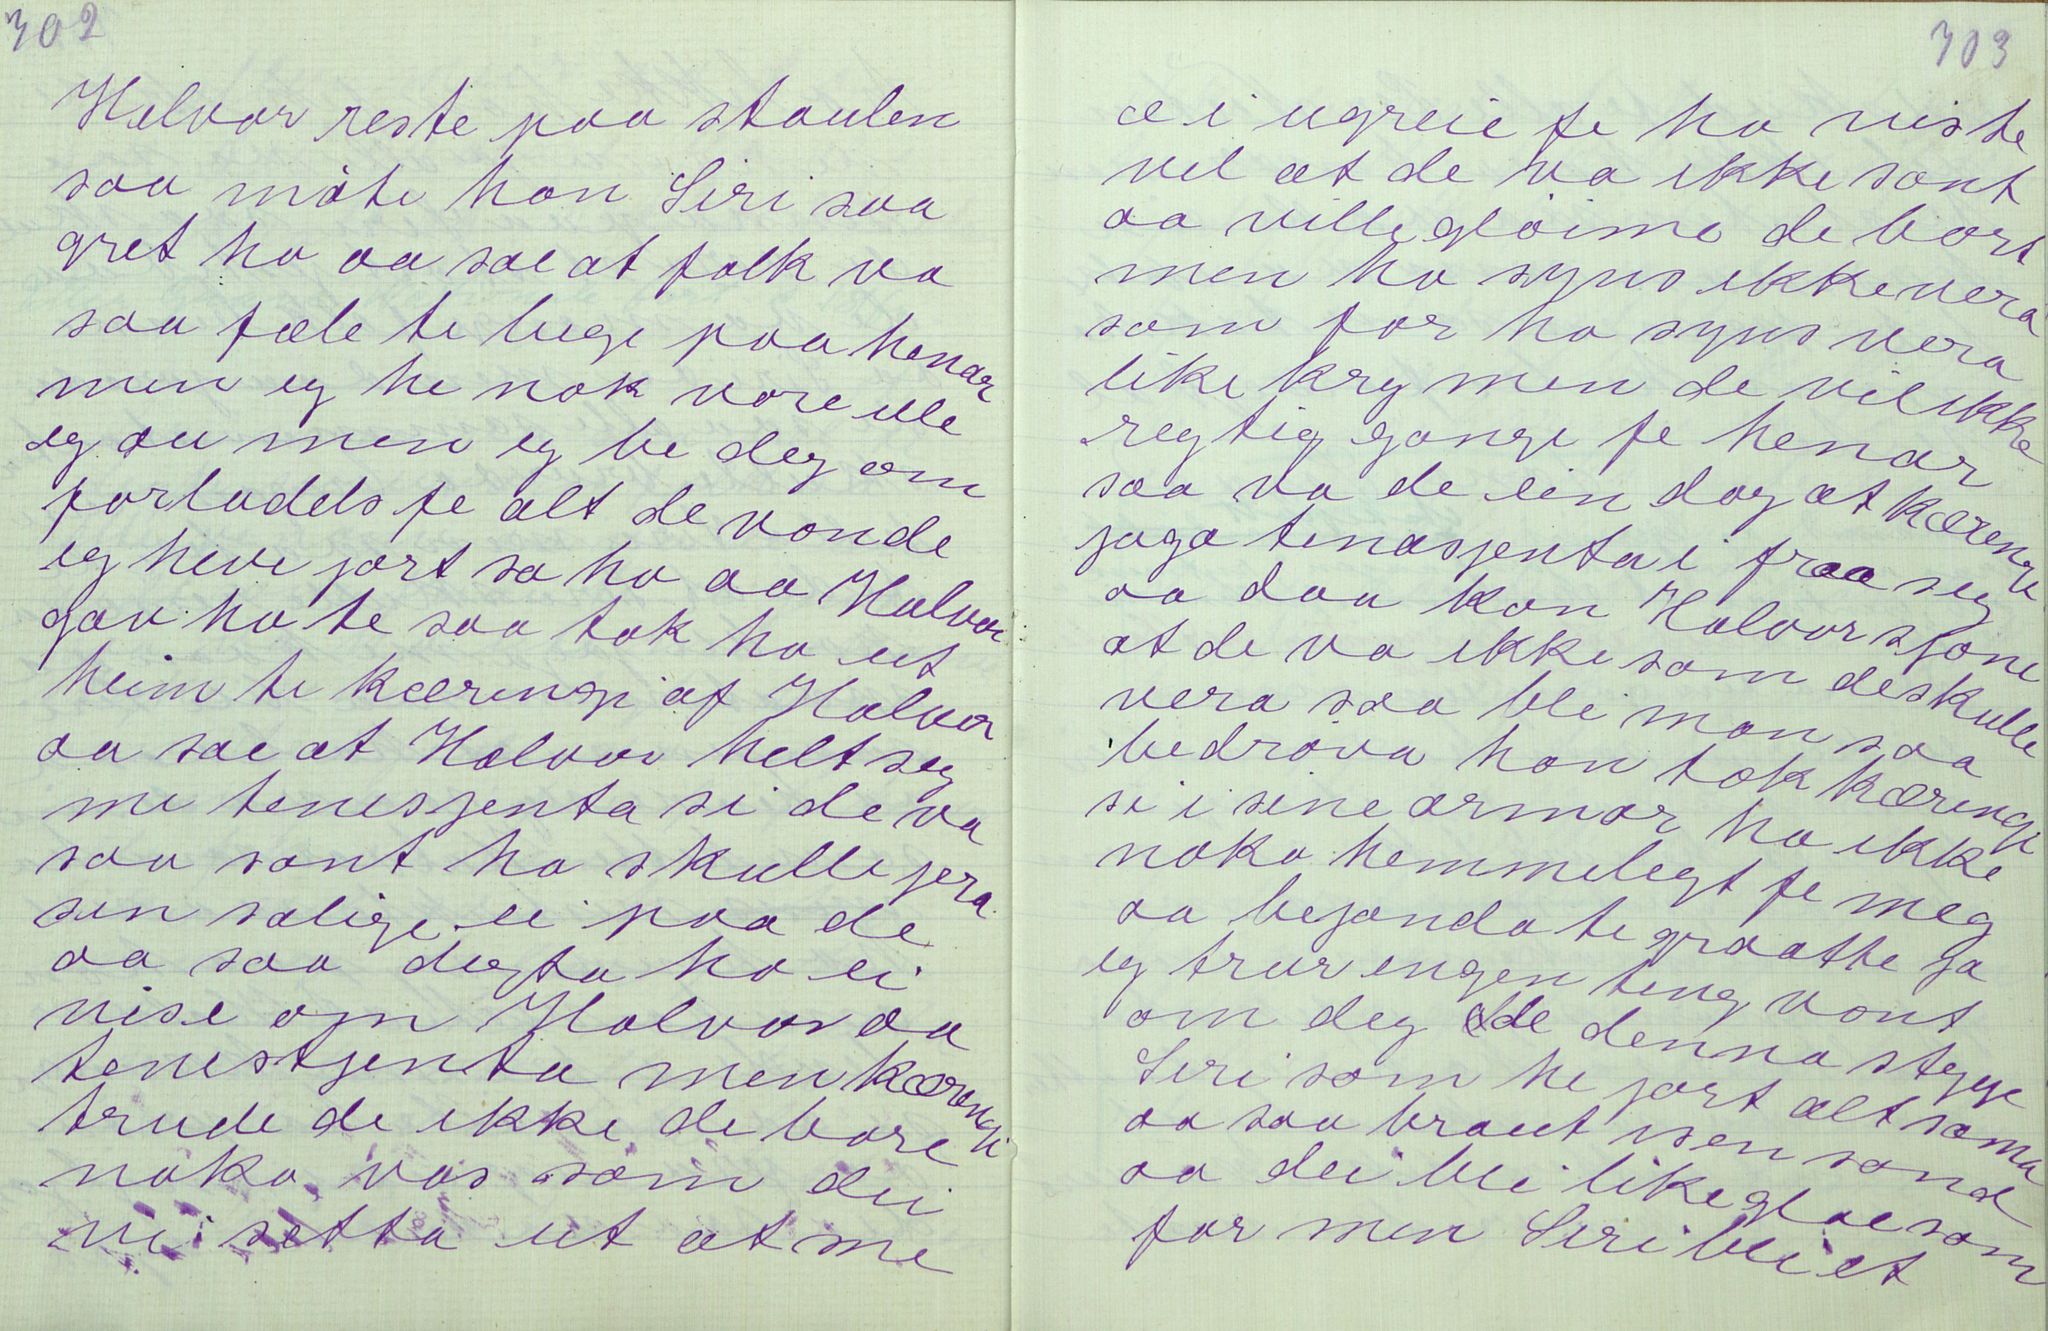 302
Halvor reste paa staulen
saa møte han Siri saa
gret ho aa sae at folk va
saa fæle te luge paa henar
men eg he nok vore ille
eg au men eg be deg om
forladels fe alt de vonde
eg heve jort sa ho aa Halvor
gav ho te saa tok ho ut
heim te kærengi af Halvor
aa sae at Halvor helt seg
me tenesjenta si de va
saa sant ho skulle jera
sin salige ei paa de
aa saa digta ho ei
vise om Halvor aa
tenestjenta men kærengi
trude de ikke de bare
noko vas som dei
vi setta ut at me
303
æ i ugreie fe ho viste
vel at de va ikke sant
aa ville gløime de bort
men ho syns ikke vera
som før ho syns vera
like kry men de vil ikke
regtig gange fe henar
saa va de ein dag at kærengi
jaga tenasjenta i fraa seg
aa daa kan Halvor sjøne
at de va ikke som de skulle
vera saa blei man saa
bedrøva han tok kærengi
si i sine armar ha ikke
noko hemmelegt fe meg
aa bejynda te graatte ja
eg trur engen teng vont
om deg de denna stygge
Siri som he jort alt sama
aa saa braut isen sand
aa dei blei like glae som
før men Siri blei et